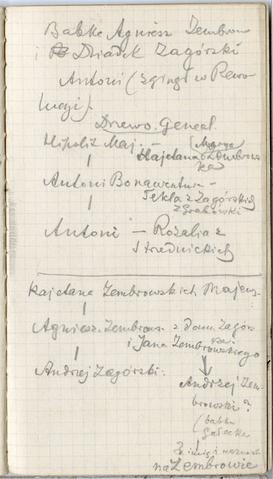 Babke Agniesz Zembrow
i Dziadek Zagórski
Antoni (zginął w Rewo
lucji).
Drzewo. Geneal.
Hipolit Maj. –
Kajetana z Dombrow
ska
Antoni Bonawentura –
Tekla z Zagórskich
z Grabówki
Antoni – Rozalia z
Średnickich
Kajetana Zembrowskich Majew
Agniesz. Zembrow. z dom. Zagór
ska
i Jana Zembrowskiego
Andrzej Zagórski.
Andrzej Zem
browski?
(babka
na Zembrowie